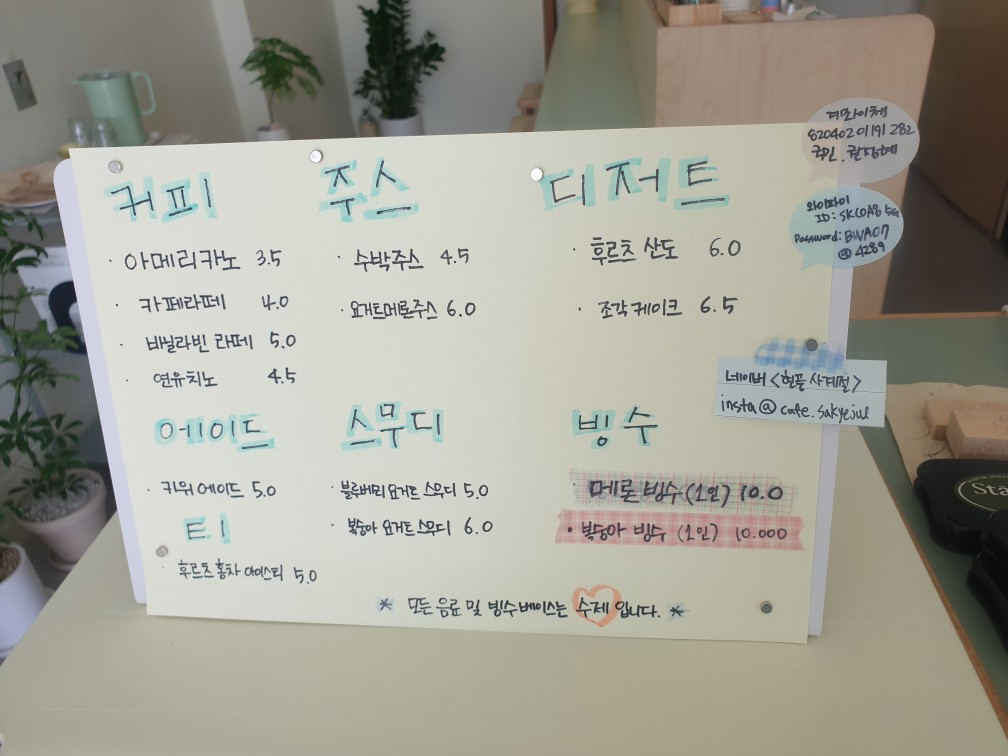 커피
아메리카노 3.5
카페라떼 4.0
바닐라빈 라떼 5.0
연유치노 4.5
주스
수박주스 4.5
요거트메론주스 6.0
디저트
후르츠 산도 6.0
조각케이크 6.5
에이드
키위에이드 5.0
티
후르츠홍차 아이스티 5.0
스무디
블루베리 요거트 스무디 5.0
복숭아 요거트 스무디 6.0
빙수
메론빙수(1인) 10.0
복숭아 빙수 (1인) 10.000
* 모든 음료 및 빙수베이스는 수제 입니다. *
계좌이체
820402 01 191 282
국민.
와이파이
ID: SKC0A8 5G
Password: BWA07
@ 4289
네이버 <현플 사계절>
insta@cafe.sakyejul
Sta